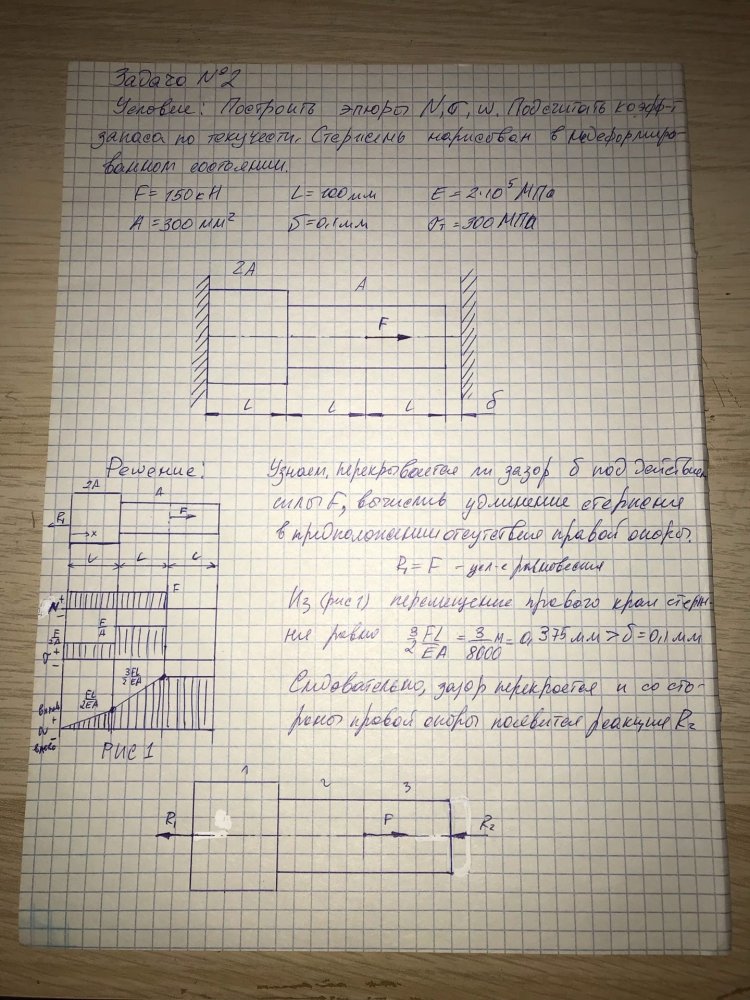 Задача №2
Условие: Построить эпюры N, σ, w. Подсчитать коэфф-т
запаса по текучести. Стержень нарисован в недеформиро-
ванном состоянии.
F = 150 кН L = 100 мм E = 2·10⁵ МПа
A = 300 мм² δ = 0,1 мм σт = 300 МПа
2A A
F
L L L δ
Решение: Узнаем, перекрывается ли зазор δ под действием
силы F, вычислив удлинение стержня
в предположении отсутствия правой опоры.
R₁ = F - усл-е равновесия
Из (рис 1) перемещение правого края стерж-
ня равно 3/2 FL/EA = 3/8000 м = 0,375 мм > δ = 0,1 мм
Следовательно, зазор перекроется и со сто-
роны правой опоры появится реакция R₂
2A A
R₁ x F
L L L
N + - F
σ + - F/2A F/A
FL/2EA 3FL/2EA
+
РИС 1
1 2 3
R₁ F R₂